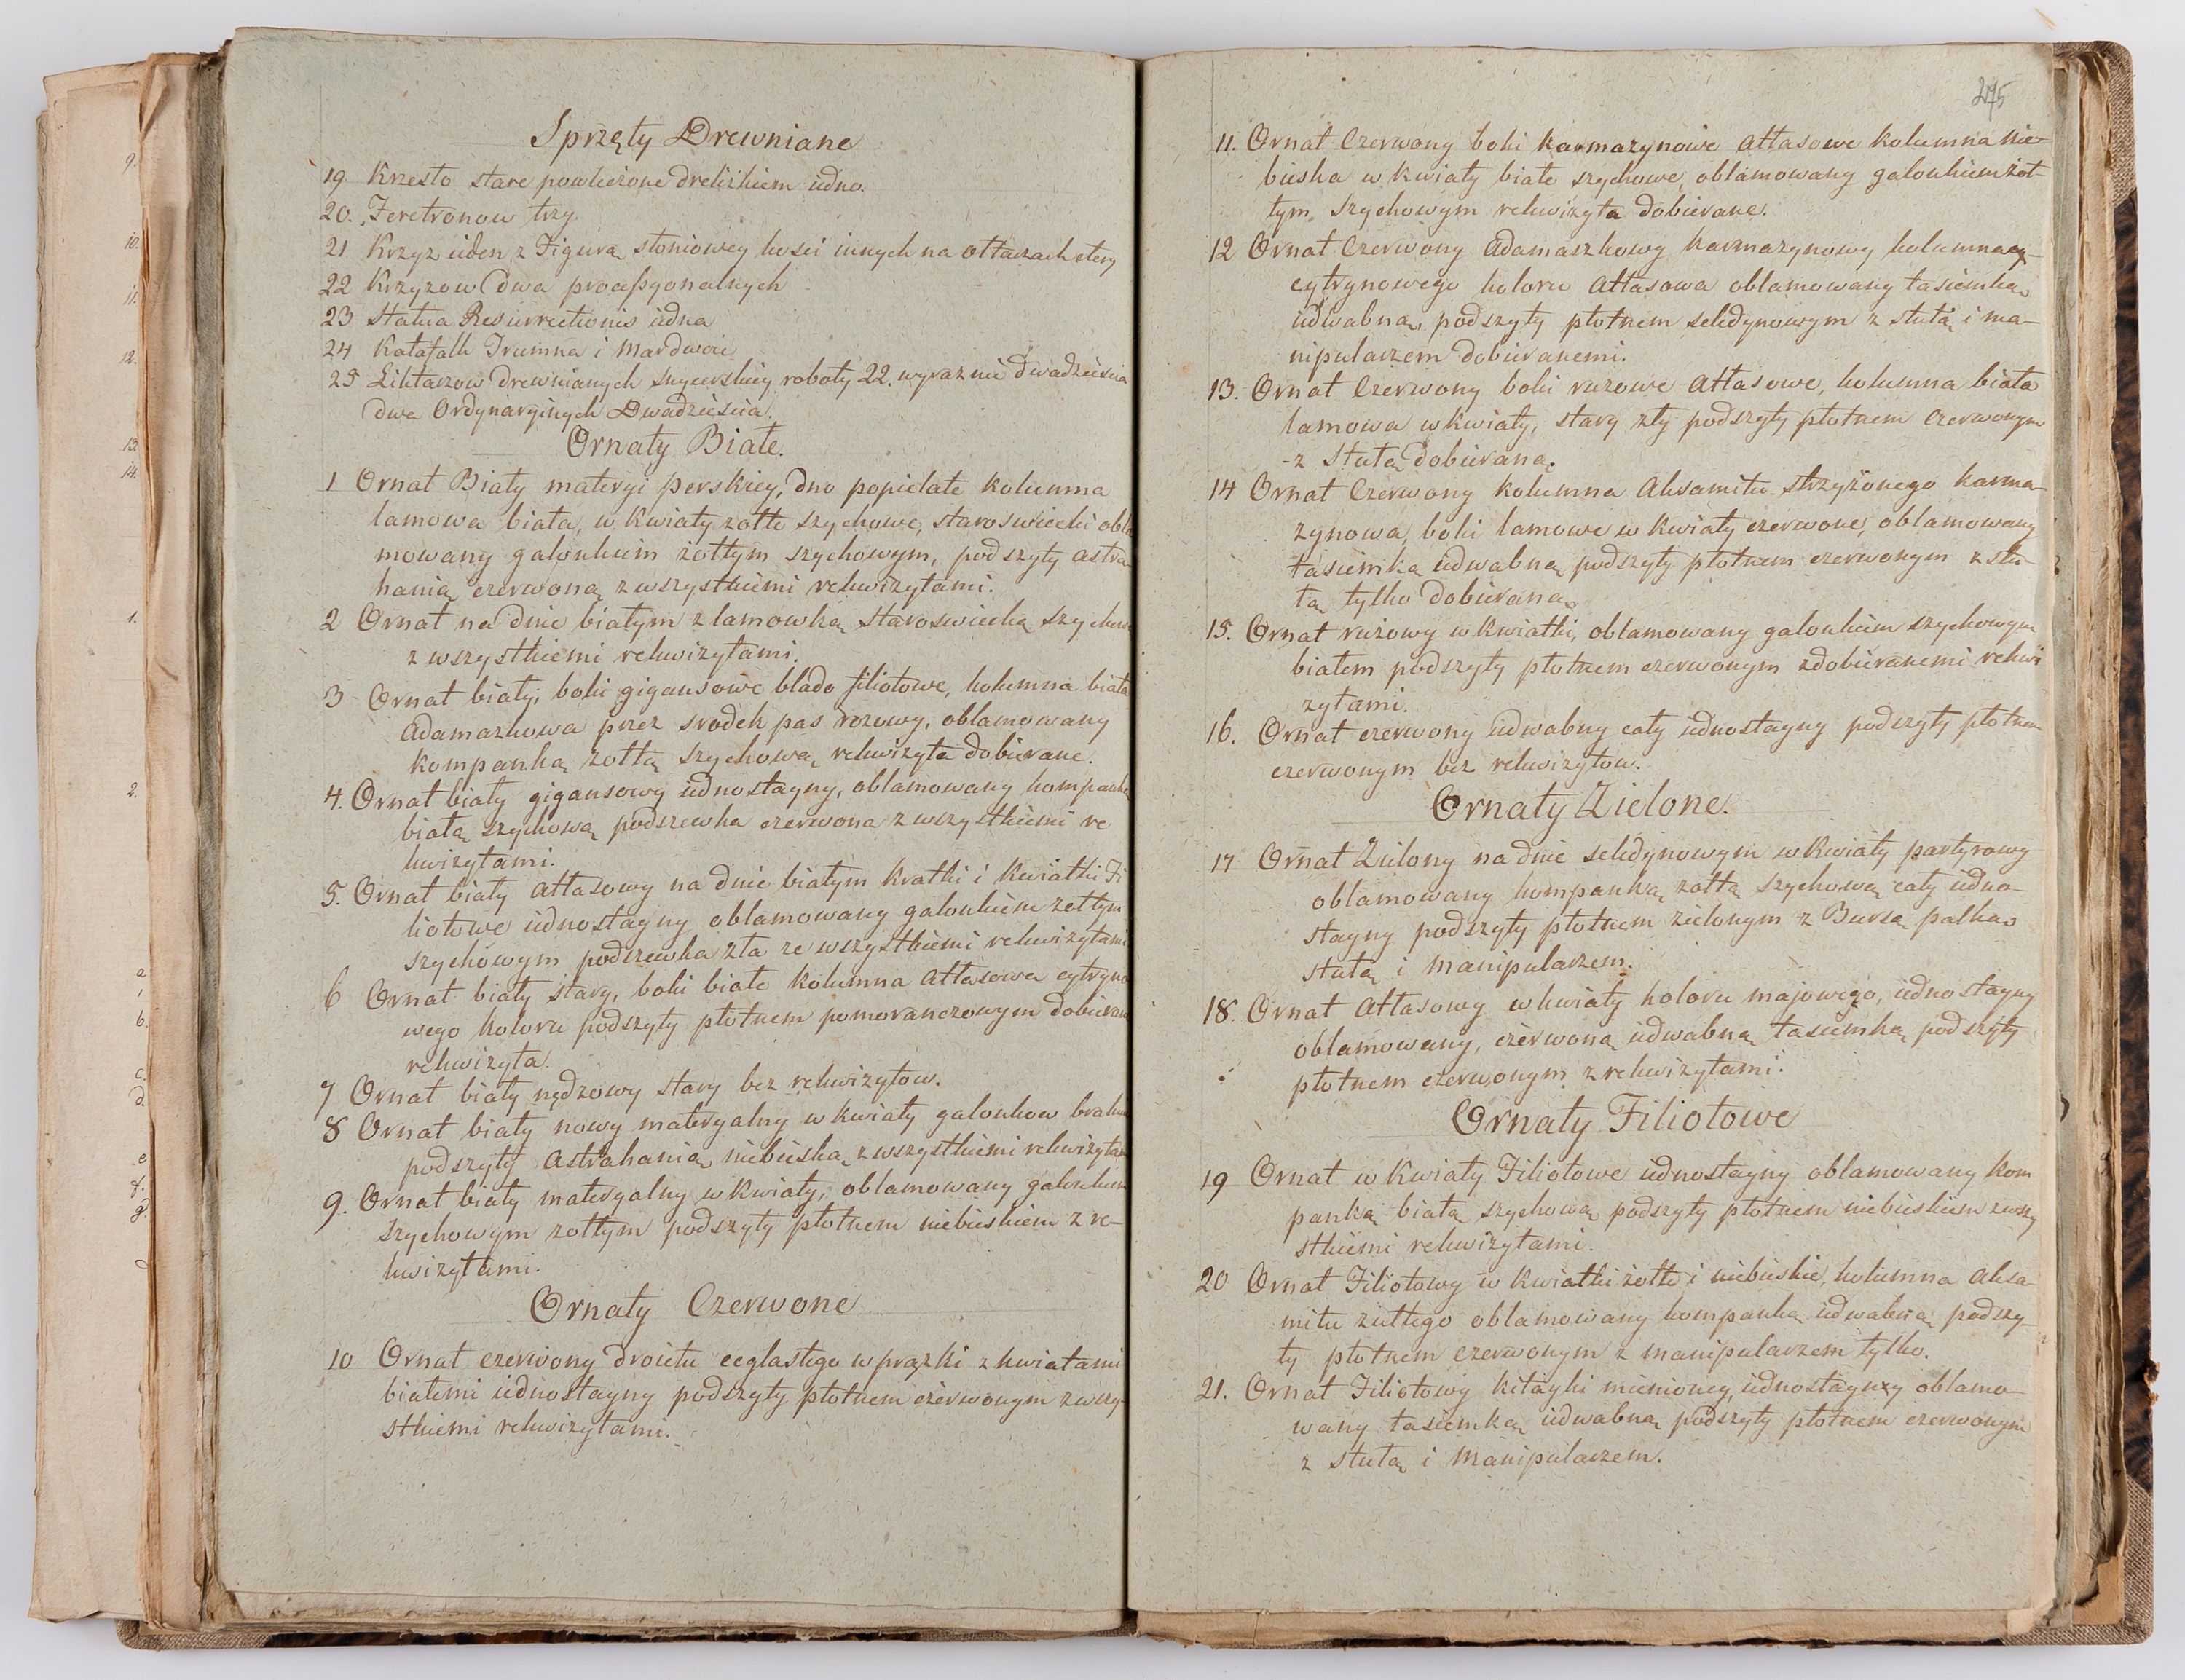 Sprzęty Drewniane
19 Krzesło stare powleżone drelichiem iedno.
20. Feretronow trzy
21 Krzyz ieden z Figurą słoniowey kości innych na ołtarzach cztery
22 Krzyzow dwa processyonalnych
23 Statua Resurrectionis iedna
24 Katafalk Trumna i Mardwoie
25 Lichtarzow drewnianych snycerskiey roboty 22. wyraznie dwadzieścia
dwa Ordynaryinych Dwadzieścia.
Ornaty Białe.
1 Ornat Biały materyi perskiey, dno popielate kolumna
lamowa biała, w kwiaty zołte szychowe, staroswiecki obla
mowany galonkiem żołtym szychowym, podszyty astra
hanią czerwoną z wszystkiemi rekwizytami.
2 Ornat na dnie białym z lamowką staroswiecką szychow
z wszystkiemi rekwizytami.
3 Ornat biały, boki gigansowe blado filiotowe, kolumna biała
Adamazkowa przez srodek pas rozowy, oblamowany
kompanką zołtą szychową, rekwizyta dobierane.
4. Ornat biały gigansowy iednostayny, oblamowany kompanką
białą szychową podszewka czerwona z wszystkiemi re
kwizytami.
5. Ornat biały Atłasowy na dnie białym kratki i kwiatki Fi
liotowe iednostayny oblamowany galonkiem zołtym
szychowym podszewka zła ze wszystkiemi rekwizytami
6 Ornat biały stary, boki białe kolumna Atłasowa cytryno
wego koloru podszyty płotnem pomoranczowym dobieran
rekwizyta.
7 Ornat biały nędzowy stary bez rekwizytow.
8 Ornat biały nowy materyalny w kwiaty galonkow brakuie
podszyty Astrahanią niebieską z wszystkiemi rekwizytam
9. Ornat biały materyalny w kwiaty, oblamowany galonkiem
szychowym zołtym podszyty płotnem niebieskiem z re-
kwizytami.
Ornaty Czerwone
10 Ornat czerwony droietu ceglastego w prązki z kwiatami
białemi iednostayny podszyty płotnem czerwonym z wszy-
stkiemi rekwizytami.
275
11. Ornat Czerwony boki karmazynowe Atłasowe kolumna nie-
bieska w kwiaty białe szychowe, oblamowany galonkiem żoł-
tym, szychowym rekwizyta dobierane.
12 Ornat Czerwony Adamaszkowy karmazynowy kolumna cy-
cytrynowego koloru Atłasowa oblamowany tasiemką
iedwabną podszyty płotnem seledynowym z stułą i ma-
nipularzem dobieranemi.
13. Ornat Czerwony boki rozowe Atłasowe, kolumna biała
lamowa w kwiaty, stary zły podszyty płotnem czerwonym
-z stułą dobieraną.
14 Ornat Czerwony kolumna Aksamitu strzyżonego karma-
zynowa, boki lamowe w kwiaty czerwone, oblamowany
tasiemką iedwabną podszyty płotnem czerwonym z stu-
łą tylko dobieraną.
15. Ornat rużowy w kwiatki, oblamowany galonkiem szychowym
białem podszyty płotnem czerwonym z dobieranemi rekwi
zytami.
16. Ornat czerwony iedwabny cały iednostayny podszyty płotnem
czerwonym bez rekwizytow.
Ornaty Zielone.
17 Ornat Zielony na dnie seledynowym w kwiaty partyrowy
oblamowany kompanką zołtą szychową cały iedno-
stayny podszyty płotnem zielonym z Bursą palką
stułą i Manipularzem.
18. Ornat Atłasowy w kwiaty koloru majowego, iednostayny
oblamowany, czerwoną iedwabną tasiemką podszyty
płotnem czerwonym z rekwizytami.
Ornaty Filiotowe
19 Ornat w Kwiaty Filiotowe iednostayny oblamowany kom
panką białą szychową podszyty płotnem niebieskiem z wszy
stkiemi rekwizytami.
20 Ornat Filiotowy w kwiatki żołte i niebieskie, kolumna Aksa-
mitu zułtego oblamowany kompanką iedwabną podszy-
ty płotnem czerwonym z manipularzem tylko.
21. Ornat Filiotowy kitayki mienioney, iednostayny oblamo-
wany tasiemką iedwabną podszyty płotnem czerwonym
z stułą i Manipularzem.